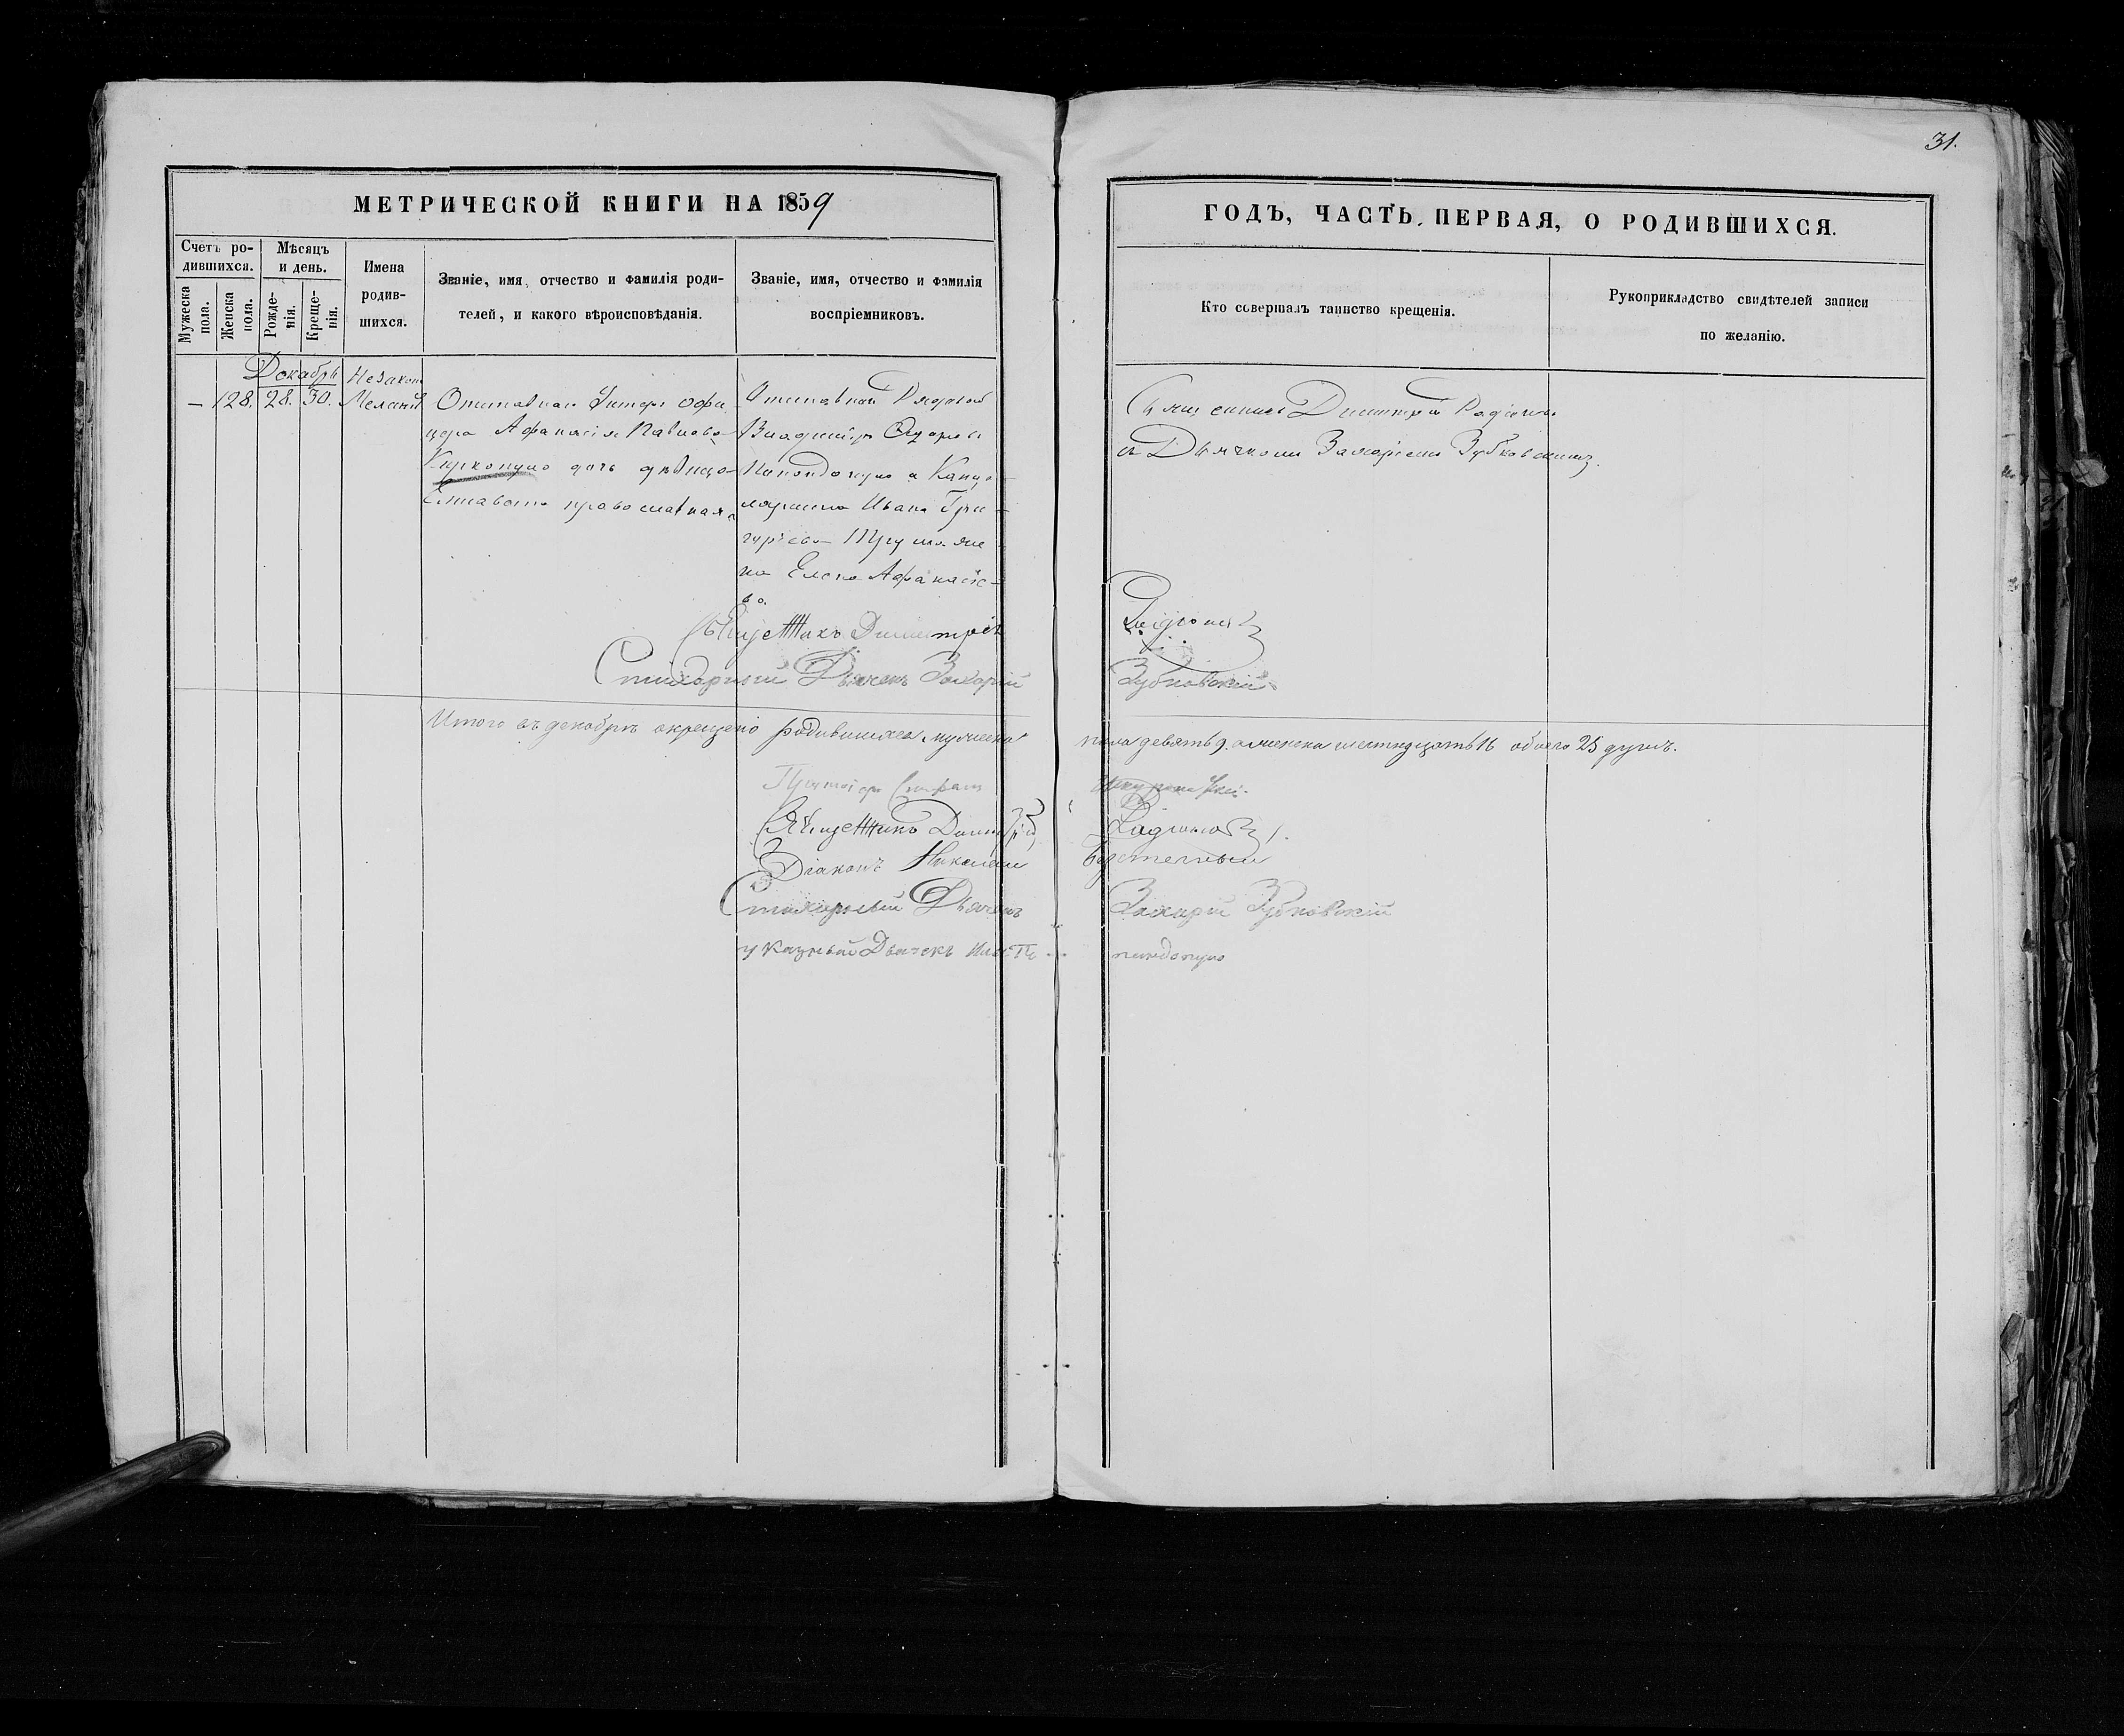 31.
МЕТРИЧЕСКОЙ КНИГИ НА 1859
ГОДЪ, ЧАСТЬ ПЕРВАЯ, О РОДИВШИХСЯ.
Счетъ ро-
дившихся.
Мужеска
пола.
Женска
пола.
Мѣсяцъ
и день.
Рожде-
нія.
Креще-
нія.
Имена
родив-
шихся.
Званіе, имя, отчество и фамилія роди-
телей, и какого вѣроисповѣданія.
Званіе, имя, отчество и фамилія
воспріемниковъ.
Кто совершалъ таинство крещенія.
Рукоприкладство свидѣтелей записи
по желанію.
Декабрь
Незакон
— 128. 28. 30. Меланія
Отставнаго Унтеръ офи
цера Афанасія Павлова
дочь дѣвица
Елисавета православная
Отставной Рядовой
Владиміръ
Попондопуло и Канце
ляриста Ивана Гри
горьева
на Елена Афанасіе-
ва.
Священникъ Димитрій Радіоновъ
и Дьячкомъ Захаріемъ Зубковскимъ.
Священникъ Димитрій Радіоновъ
Стихарный Дьячекъ Захарій Зубковскій
Итого въ декабрѣ окрещено родившихся мужеска пола девять 9. а женска шестнадцать 16 обоего 25 душъ.
Протоіерей
Священникъ Димитрій Радіоновъ
Діаконъ Николай
Стихарный Дьячекъ Захарій Зубковскій
указный Дьячекъ Илья По пандопуло